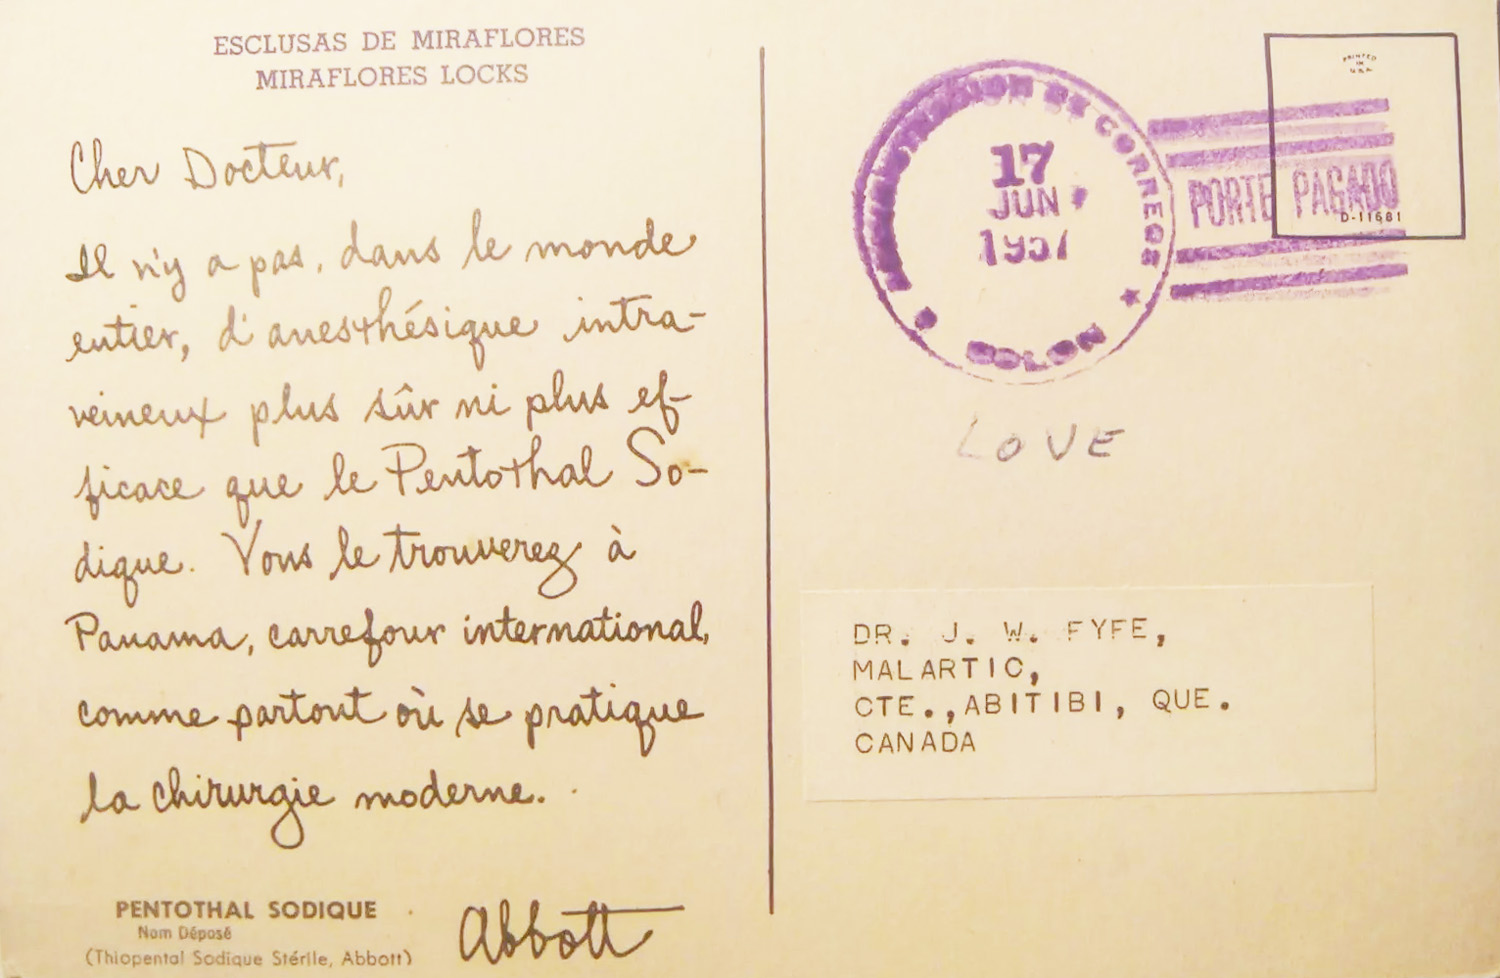 ESCLUSAS DE MIRAFLORES
MIRAFLORES LOCKS
Cher Docteur,
Il n'y a pas, dans le monde
entier, d'anesthésique intra-
veineux plus sûr ni plus ef-
ficace que le Pentothal So-
dique. Vous le trouverez à
Panama, carrefour international,
comme partout où se pratique
la chirurgie moderne.
PENTOTHAL SODIQUE
Nom Déposé
(Thiopental Sodique Stérile, Abbott)
Abbott
PRINTED
IN
U.S.A.
ADMINISTRACION DE CORREOS
17
JUN
1957
COLON
PORTE PAGADO
D-11681
LOVE
DR. J. W. FYFE,
MALARTIC,
CTE.,ABITIBI, QUE.
CANADA